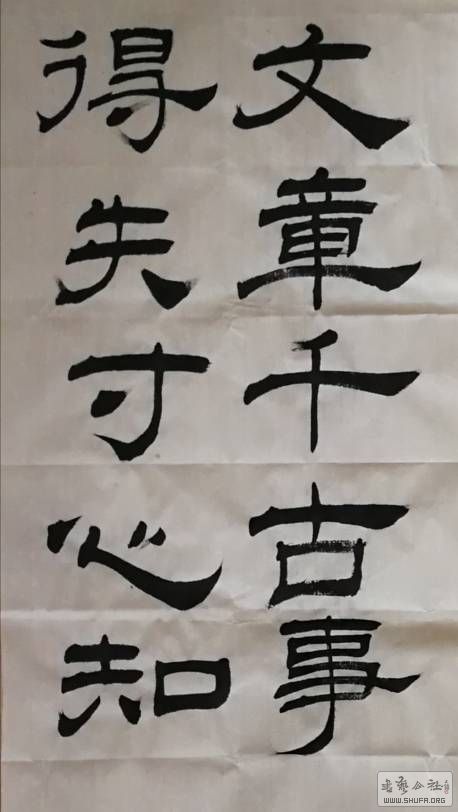 文章千古事
得失寸心知
WWW.SHUFA.ORG